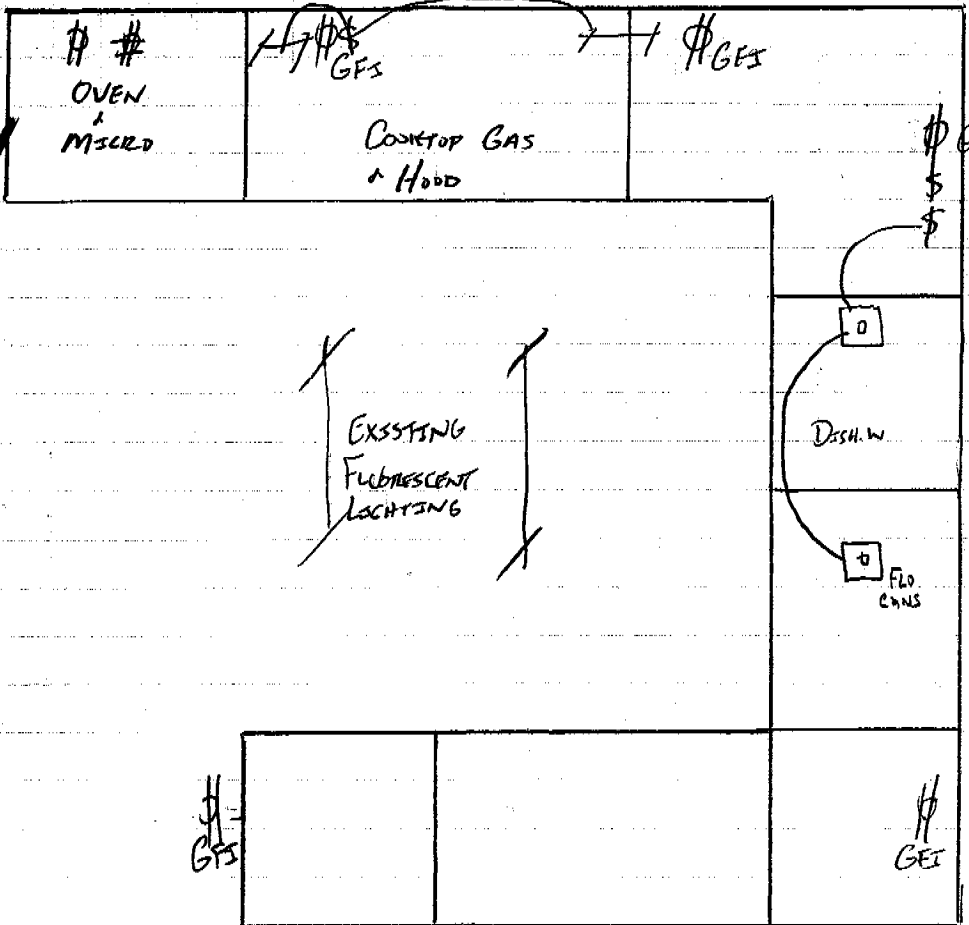 OVEN
&
MICRO
GFI
COOKTOP GAS
& HOOD
GFI
G
$
$
EXISTING
FLUORESCENT
LIGHTING
DISH.W
FLO.
CANS
GFI
GFI